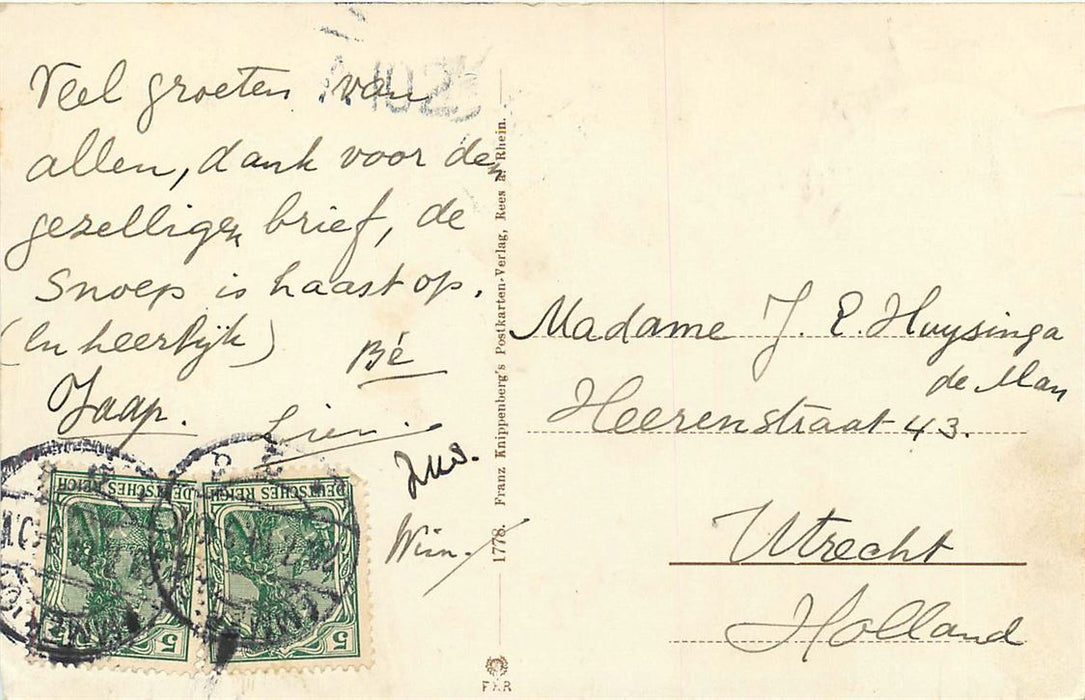 Veel groeten van
allen, dank voor den
gezelligen brief, de
Snoep is haast op.
(En heerlijk)
Bé
Jaap.
Lien.
Wim.
1778. Franz Knippenberg's Postkarten-Verlag, Rees a. Rhein.
Madame J. E. Huysinga
de Man
Heerenstraat 43.
Utrecht
Holland
DEUTSCHES REICH
5
DEUTSCHES REICH
5